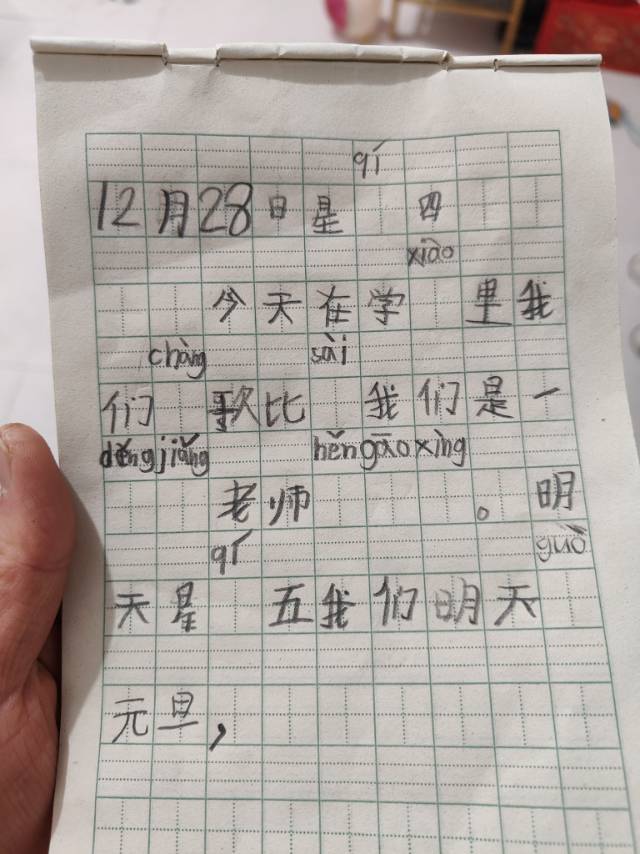 qí
12月28日星 四
xiào
今天在学 里我
chàng sài
们 歌比 我们是一
děng jiǎng hěn gāo xìng
老师 。明
qí guò
天星 五我们明天
元旦，